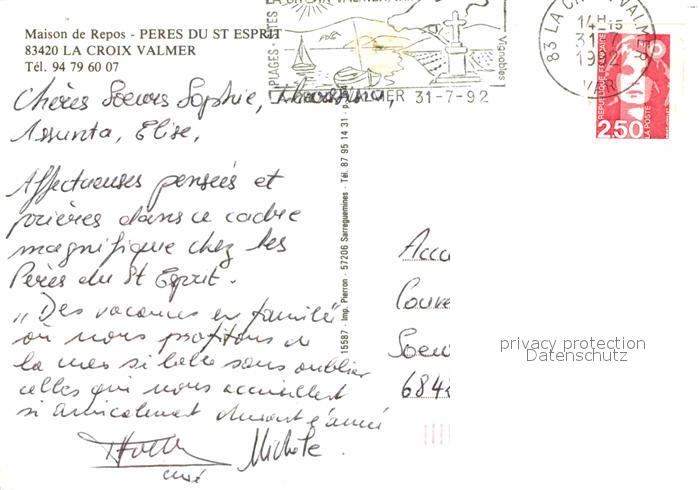 Maison de Repos - PERES DU ST ESPRIT
83420 LA CROIX VALMER
Tél. 94 79 60 07
Chères Soeurs Sophie,
Assunta, Elise,
Affectueuses pensées et
prières dans ce cadre
magnifique chez les
Pères du St Esprit.
"Des vacances en famille"
où nous profitons de
la mer si belle sans oublier
celles qui nous accueillent
si amicalement durant l'année
curé Michèle.
PLAGES
Vignobles
31-7-92
83 LA CROIX VALMER
14H15
31-7
1992
VAR
REPUBLIQUE FRANÇAISE
2,50
LA POSTE
15587 - Imp. Pierron - 57206 Sarreguemines - Tél. 87 95 14 31
Accu
Couve
Soeu
684
privacy protection
Datenschutz